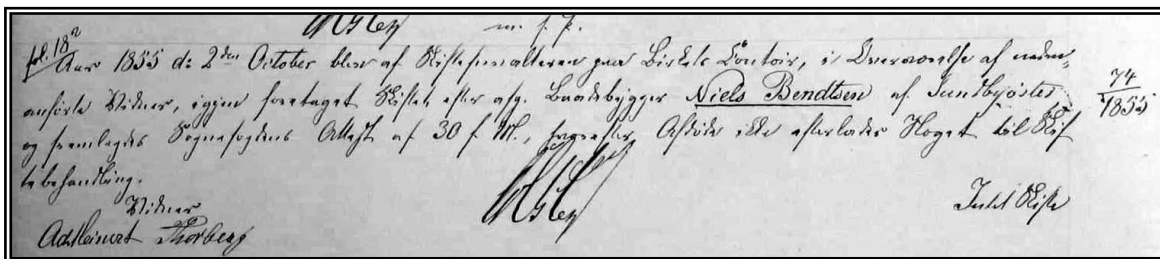 m. f. P.
fol. 18²
Aar 1855 d: 2den October blev af Skifteforvalteren paa Birkets Contoir, i Overværelse af neden-
anførte Vidner, igjen foretaget Skiftet efter afg. Baadebygger Niels Bendtsen af Sundbyøster 74/1855
og fremlagdes Sognefogdens Attest af 30 f. M., hvorefter Afdøde ikke efterlader Noget til Skif-
tebehandling.
Vidner
Intet Skifte
Thorberg